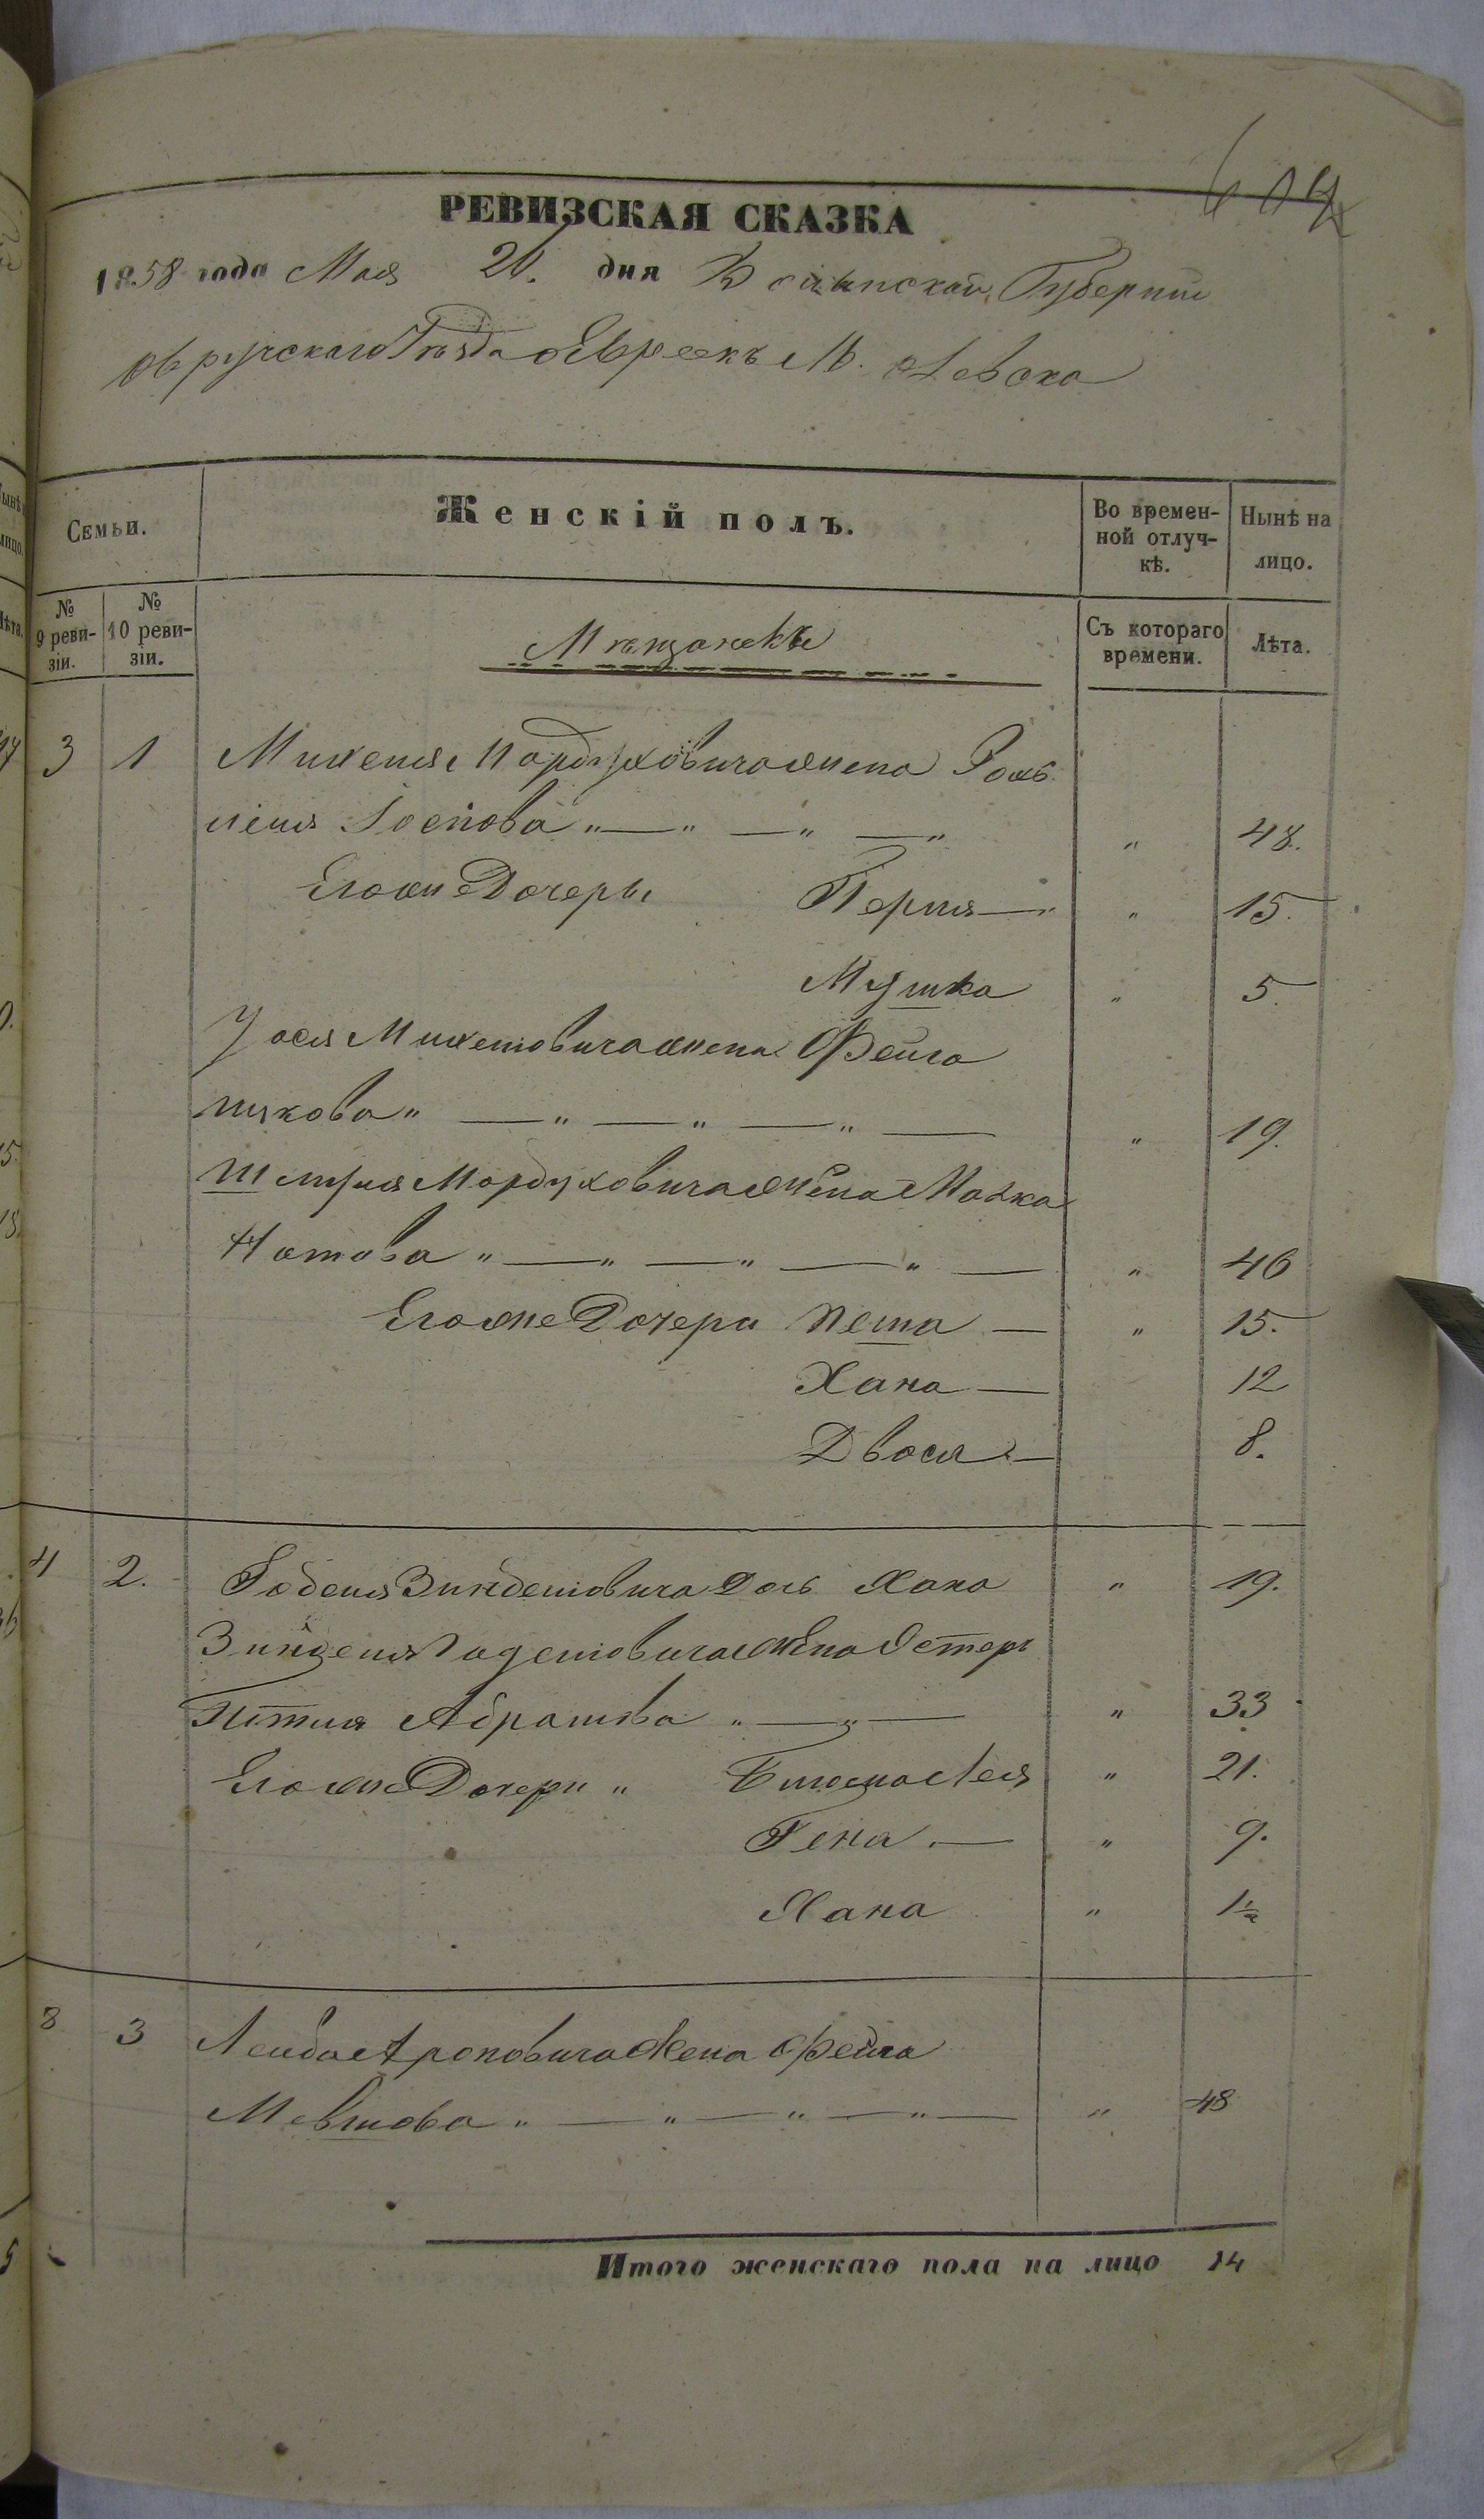 РЕВИЗСКАЯ СКАЗКА
1858 года Мая 20. дня Волынской Губернии
Овручскаго Уѣзда Евреекъ М.
Женскій полъ.
Семьи.
Во времен-
ной отлуч-
кѣ.
Нынѣ на
лицо.
№
9 реви-
зіи.
№
10 реви-
зіи.
Мѣщанекъ
Съ котораго
времени.
Лѣта.
3 1 Михеля Мордуховича жена
Іосіова " — " — " — " " 48.
Егоже Дочеры Перля — " " 15.
Мушка " 5.
Іося Михелговича жена Фейга
" — " — " — " — " 19.
Шмуля Мордуховича жена Малка
Нотова " — " — " — " — " 46
Егоже Дочери Пеша — " 15.
Хана — 12
Двося — 8.
4 2. Зинделіовича Дочь Хана " 19.
жена Эстеръ
Абрамова " — " — " 33
Егоже Дочери " Лея " 21.
Гена — " 9.
Хана " 1½
8 3 Лейба Ароновича Жена Фейга
Мевшова " — " — " — " — " 48
Итого женскаго пола на лицо 14